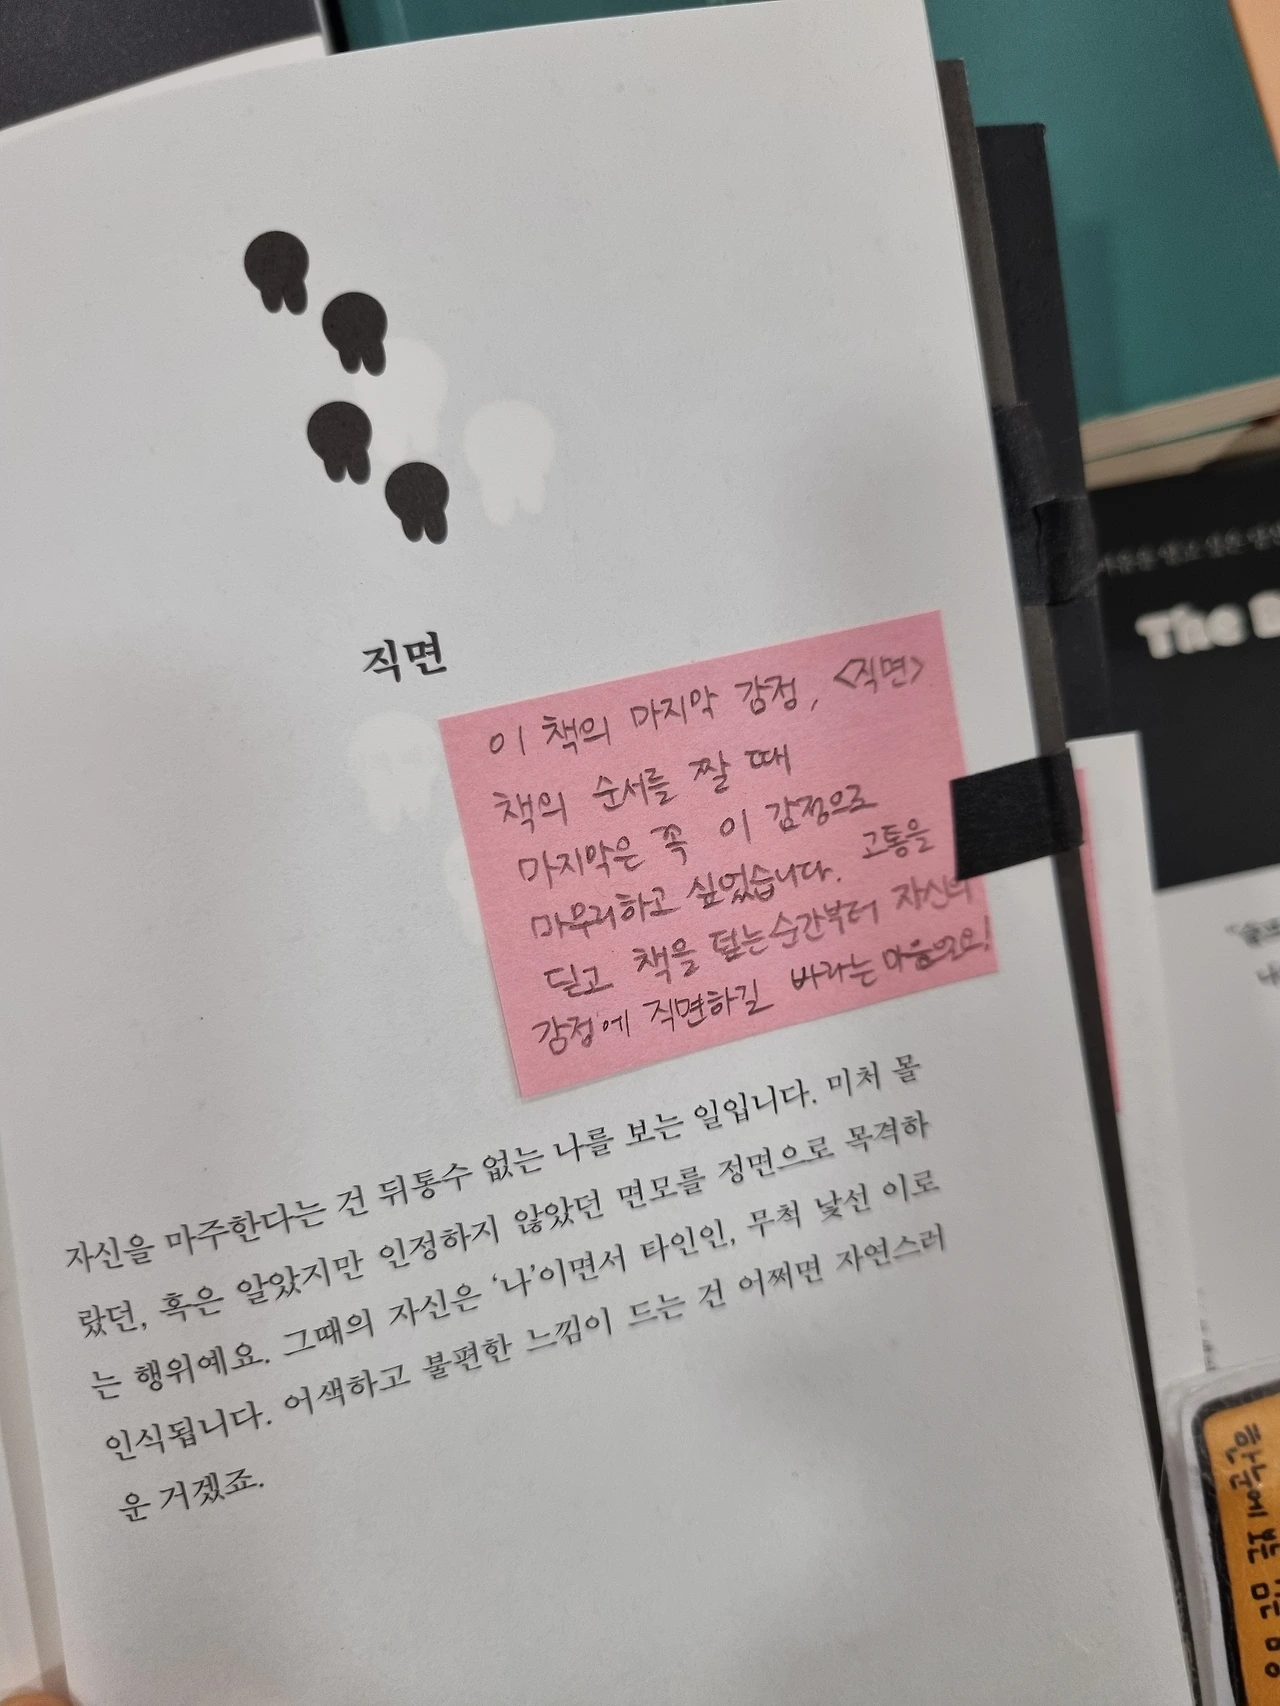 직면
이 책의 마지막 감정, <직면>
책의 순서를 짤 때
마지막은 꼭 이 감정으로
마무리하고 싶었습니다. 고통을
딛고 책을 덮는 순간부터 자신의
감정에 직면하길 바라는 마음으로요!
자신을 마주한다는 건 뒤통수 없는 나를 보는 일입니다. 미처 몰
랐던, 혹은 알았지만 인정하지 않았던 면모를 정면으로 목격하
는 행위예요. 그때의 자신은 ‘나’이면서 타인인, 무척 낯선 이로
인식됩니다. 어색하고 불편한 느낌이 드는 건 어쩌면 자연스러
운 거겠죠.
The